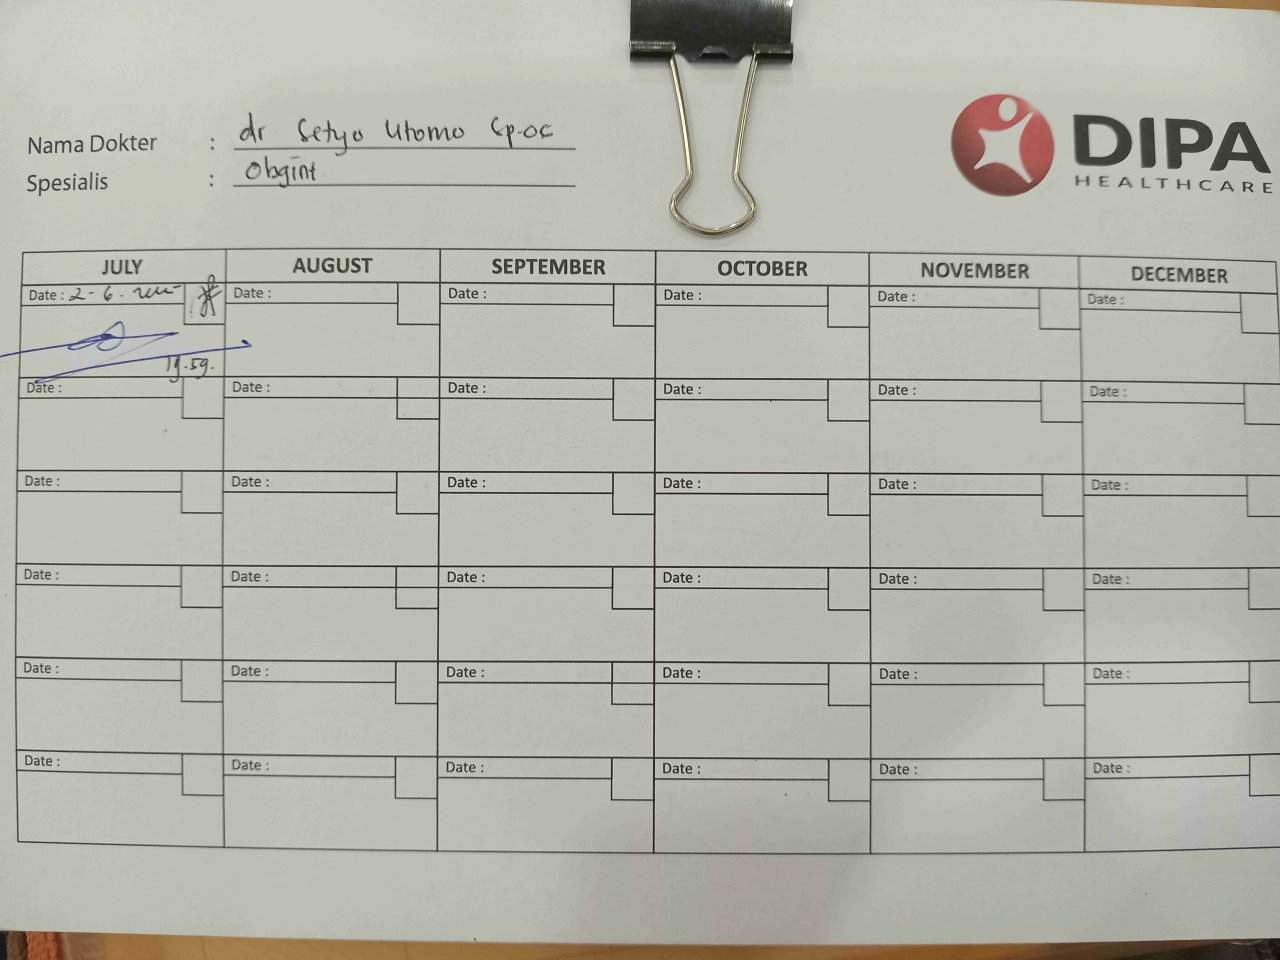 DIPA
HEALTHCARE
Nama Dokter : dr Setyo Utomo Sp.OG
Spesialis : Obgint
JULY AUGUST SEPTEMBER OCTOBER NOVEMBER DECEMBER
Date : 2-6- Date : Date : Date : Date : Date :
19.59.
Date : Date : Date : Date : Date : Date :
Date : Date : Date : Date : Date : Date :
Date : Date : Date : Date : Date : Date :
Date : Date : Date : Date : Date : Date :
Date : Date : Date : Date : Date : Date :